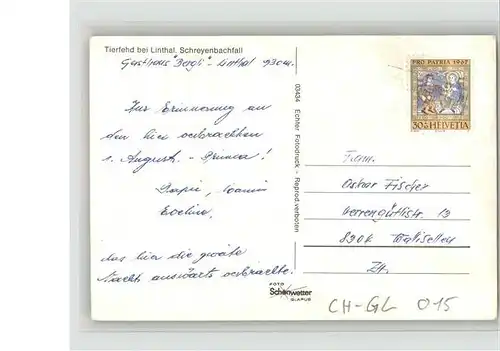 Tierfehd bei Linthal. Schreyenbachfall
Gasthaus "Bergli" - Linthal 930 m.
Zur Erinnerung an
den hier verbrachten
1. August.
Evelin,
das hier die zweite
Nacht auswärts verbrachte.
03434 Echter Fotodruck - Reprod. verboten
FOTO
Schönwetter
GLARUS
PRO PATRIA 1967
HELVETIA
Fam.
Oskar Fischer
13
Wallisellen
Zh.
CH-GL 015